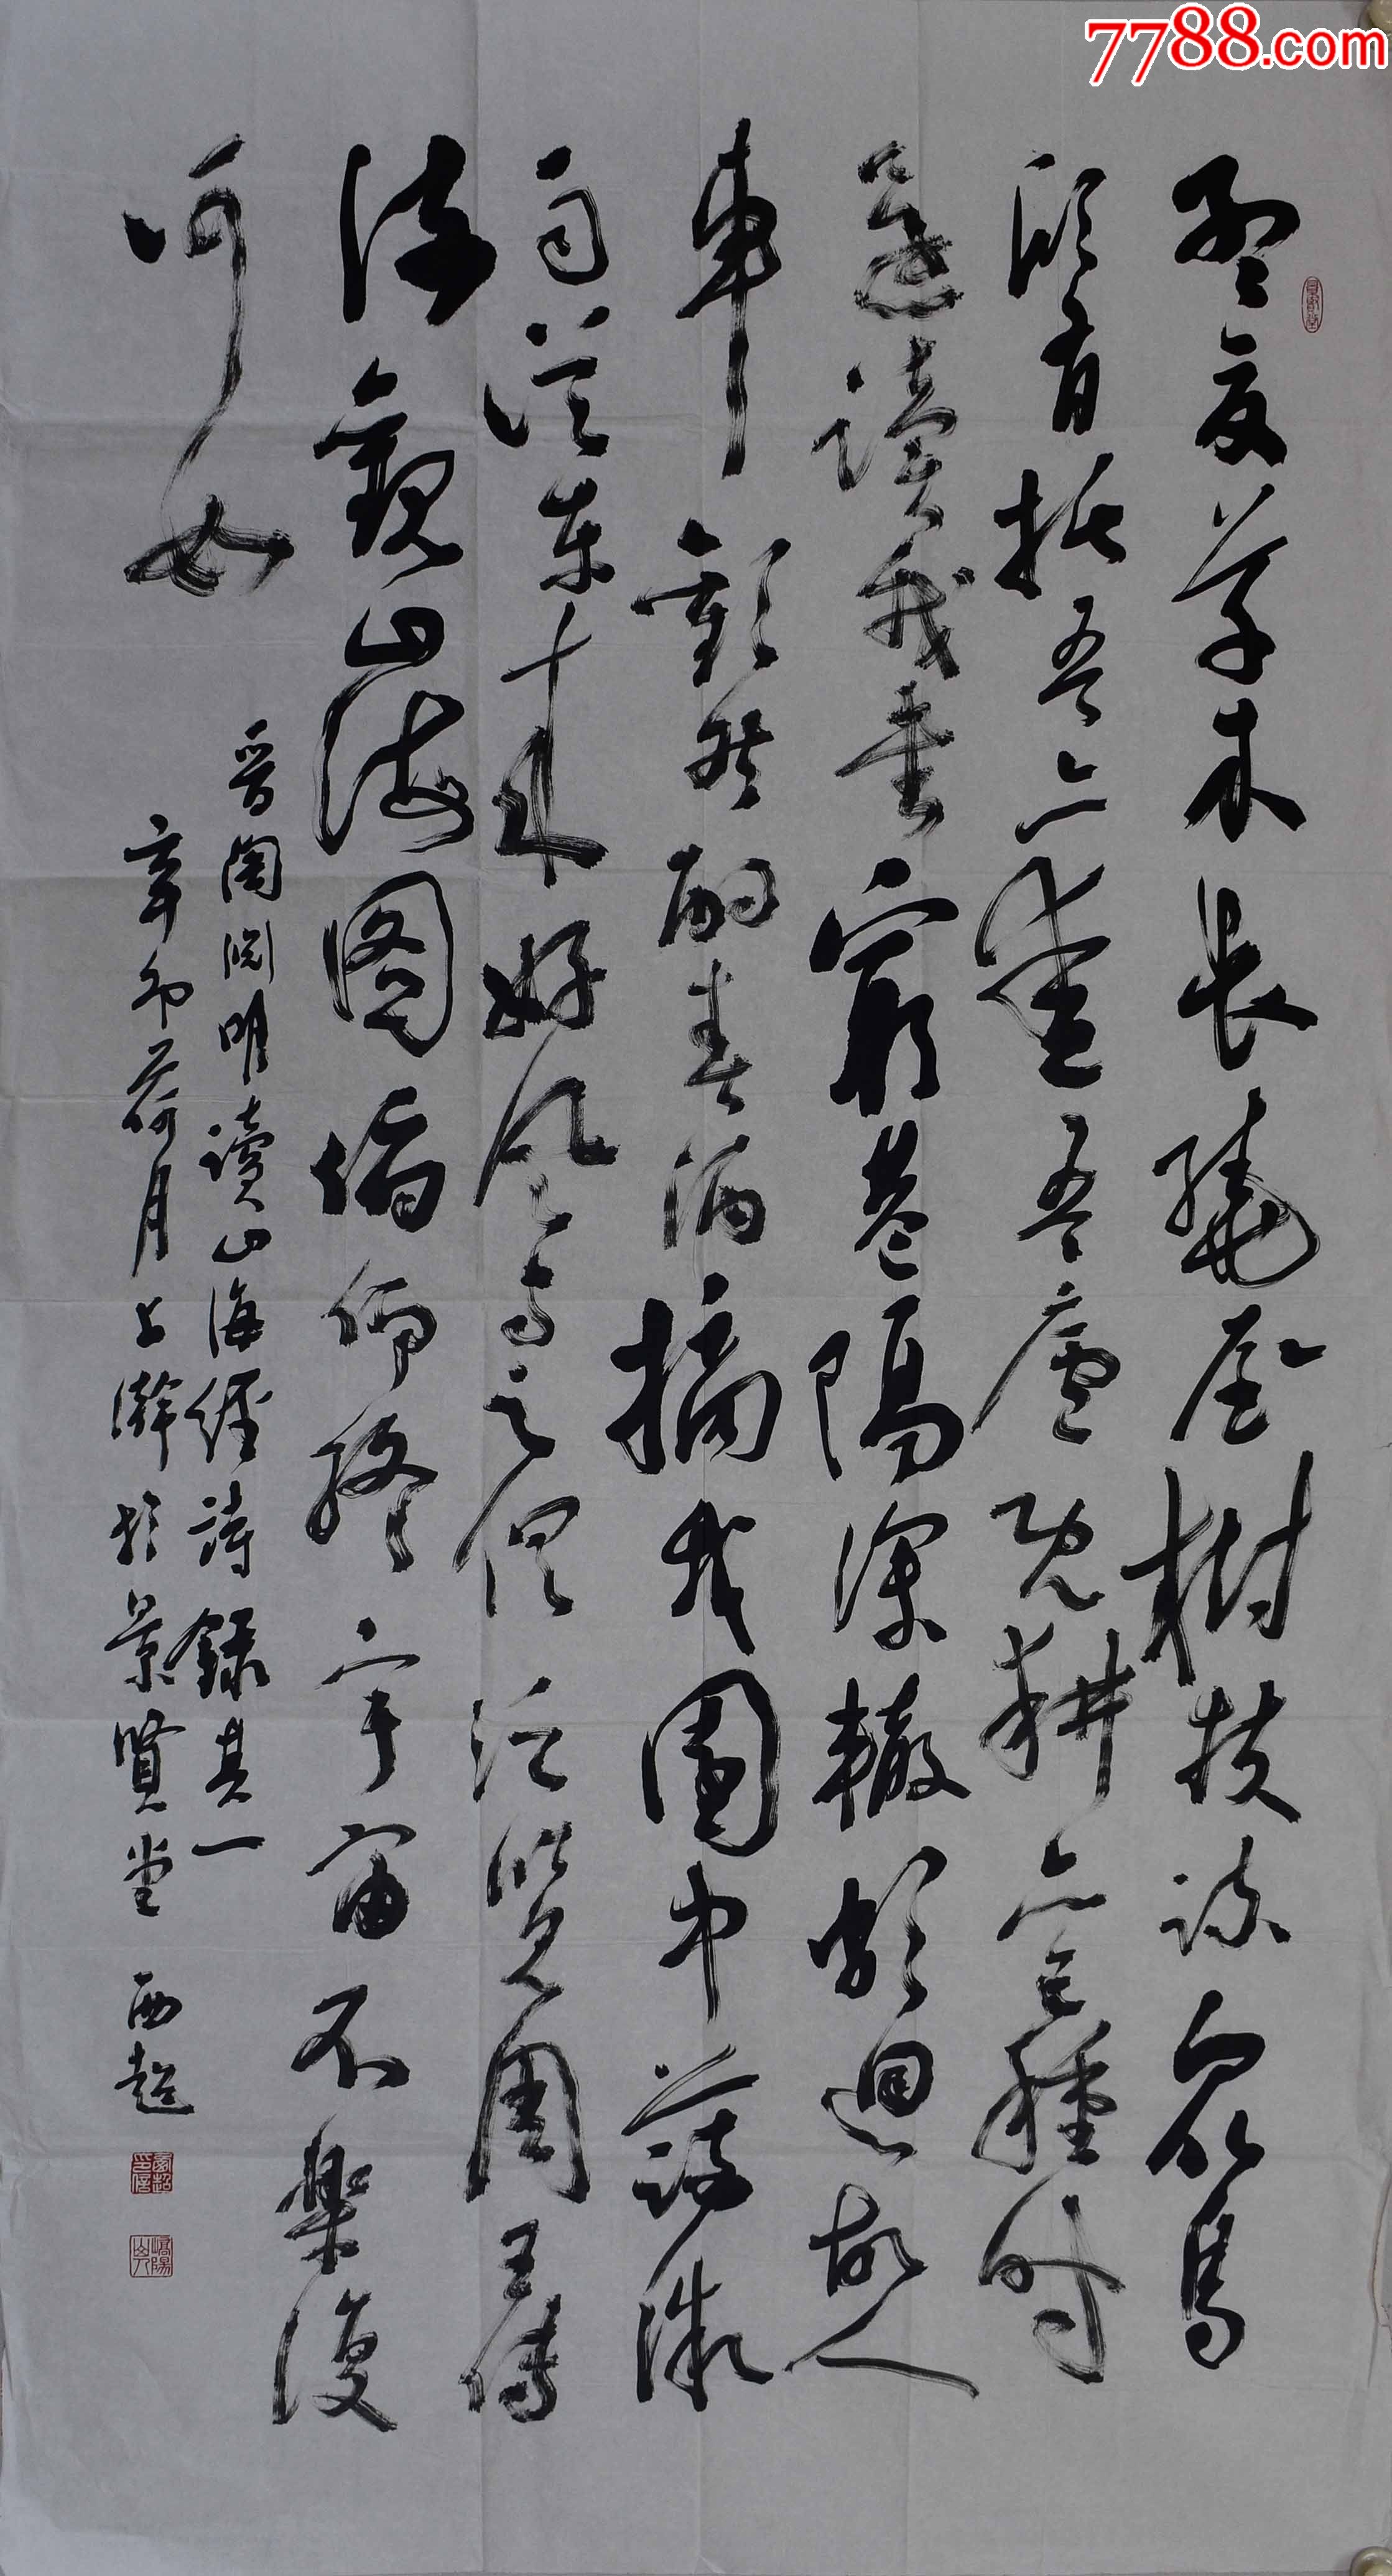 7788.com
孟夏草木長繞屋樹扶疎衆鳥
欣有托吾亦愛吾廬既耕亦已種時
還讀我書窮巷隔深轍頗迴故人
車歡然酌春酒摘我園中蔬微
雨從東來好風與之俱泛覽周王傳
流觀山海图俯仰終宇宙不樂復
何如
晋陶渊明讀山海經詩録其一
辛卯荷月上澣於景賢堂 西超